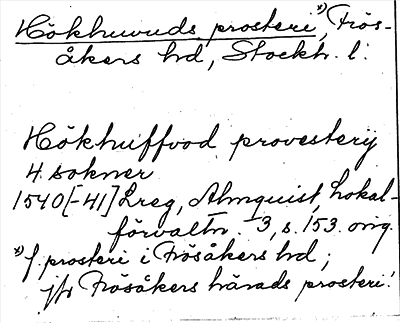 Hökhuvuds prosteri x), Frös-
åkers hd, Stockh. l.
Hökhuffvod provesterij
4 sokner
1540[-41] Lreg, Almquist, Lokal-
förvaltn. I 3, s. 153. orig.
x) f. prosteri i Frösåkers hd;
jfr Frösåkers härads prosteri!